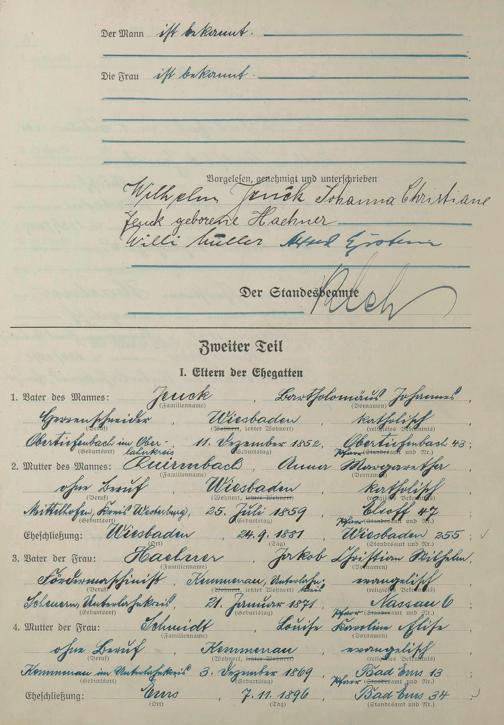 Der Mann ist bekannt.
Die Frau ist bekannt.
Vorgelesen, genehmigt und unterschrieben
Wilhelm Jeuck Johanna Christiane
Jeuck geborene Haehner
Willi Müller Alfred
Der Standesbeamte
Zweiter Teil
I. Eltern der Ehegatten
1. Vater des Mannes: Jeuck, Bartholomäus Johannes,
(Familienname) (Vornamen)
Herrenschneider, Wiesbaden katholisch
(Beruf) (Wohnort, letzter Wohnort) (religiöses Bekenntnis)
Obertiefenbach im Ober-lahnkreis, 11. Dezember 1852, Obertiefenbach 43;
(Geburtsort) (Geburtstag) Pfarr (Standesamt und Nr.)
2. Mutter des Mannes: Quirmbach, Anna Margaretha
(Familienname) (Vornamen)
ohne Beruf Wiesbaden katholisch
(Beruf) (Wohnort, letzter Wohnort) (religiöses Bekenntnis)
Mittelhofen, Kreis Westerburg, 25. Juli 1859 Elsoff 47
(Geburtsort) (Geburtstag) Pfarr (Standesamt und Nr.)
Eheschließung: Wiesbaden 24. 9. 1881 Wiesbaden 255;
(Ort) (Tag) (Standesamt und Nr.)
3. Vater der Frau: Haehner, Jakob Christian Wilhelm,
(Familienname) (Vornamen)
Fördermaschinist Kemmenau, Unterlahnkreis evangelisch
(Beruf) (Wohnort, letzter Wohnort) (religiöses Bekenntnis)
Scheuern, Unterlahnkreis, 21. Januar 1871, Nassau 6
(Geburtsort) (Geburtstag) Pfarr (Standesamt und Nr.)
4. Mutter der Frau: Schmidt Louise Karoline Elise
(Familienname) (Vornamen)
ohne Beruf Kemmenau evangelisch
(Beruf) (Wohnort, letzter Wohnort) (religiöses Bekenntnis)
Kemmenau im Unterlahnkreis 3. Dezember 1869, Bad Ems 13
(Geburtsort) (Geburtstag) Pfarr (Standesamt und Nr.)
Eheschließung: Ems, 7. 11. 1896 Bad Ems 34
(Ort) (Tag) (Standesamt und Nr.)